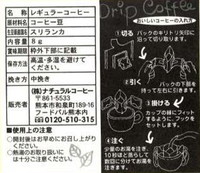 名称 レギュラーコーヒー
原材料名 コーヒー豆
生豆生産国名 スリランカ
内容量 8g
賞味期限 枠外下部に記載
保存方法 高温・多湿を避けて
ください。
挽き方 中挽き
販売者 (株)ナチュラルコーヒー
〒861-5533
熊本市和泉町189-16
フードパル熊本内
0120-510-315
■使用上の注意
○開封後はお早めにお召し上がり
ください。
○熱湯のお取り扱い
には十分ご注意ください。
Drip Coffee
おいしいコーヒーの入れ方
①切る
パックのキリトリ線に
沿って切り取ります。
②開く
パックの下部を
持って左右に引きます。
③掛ける
カップの縁にフィット
するように、フックを
セットします。
④注ぐ
少量のお湯を注いで、
10秒ほど蒸らして
数回に分けて注ぎます。